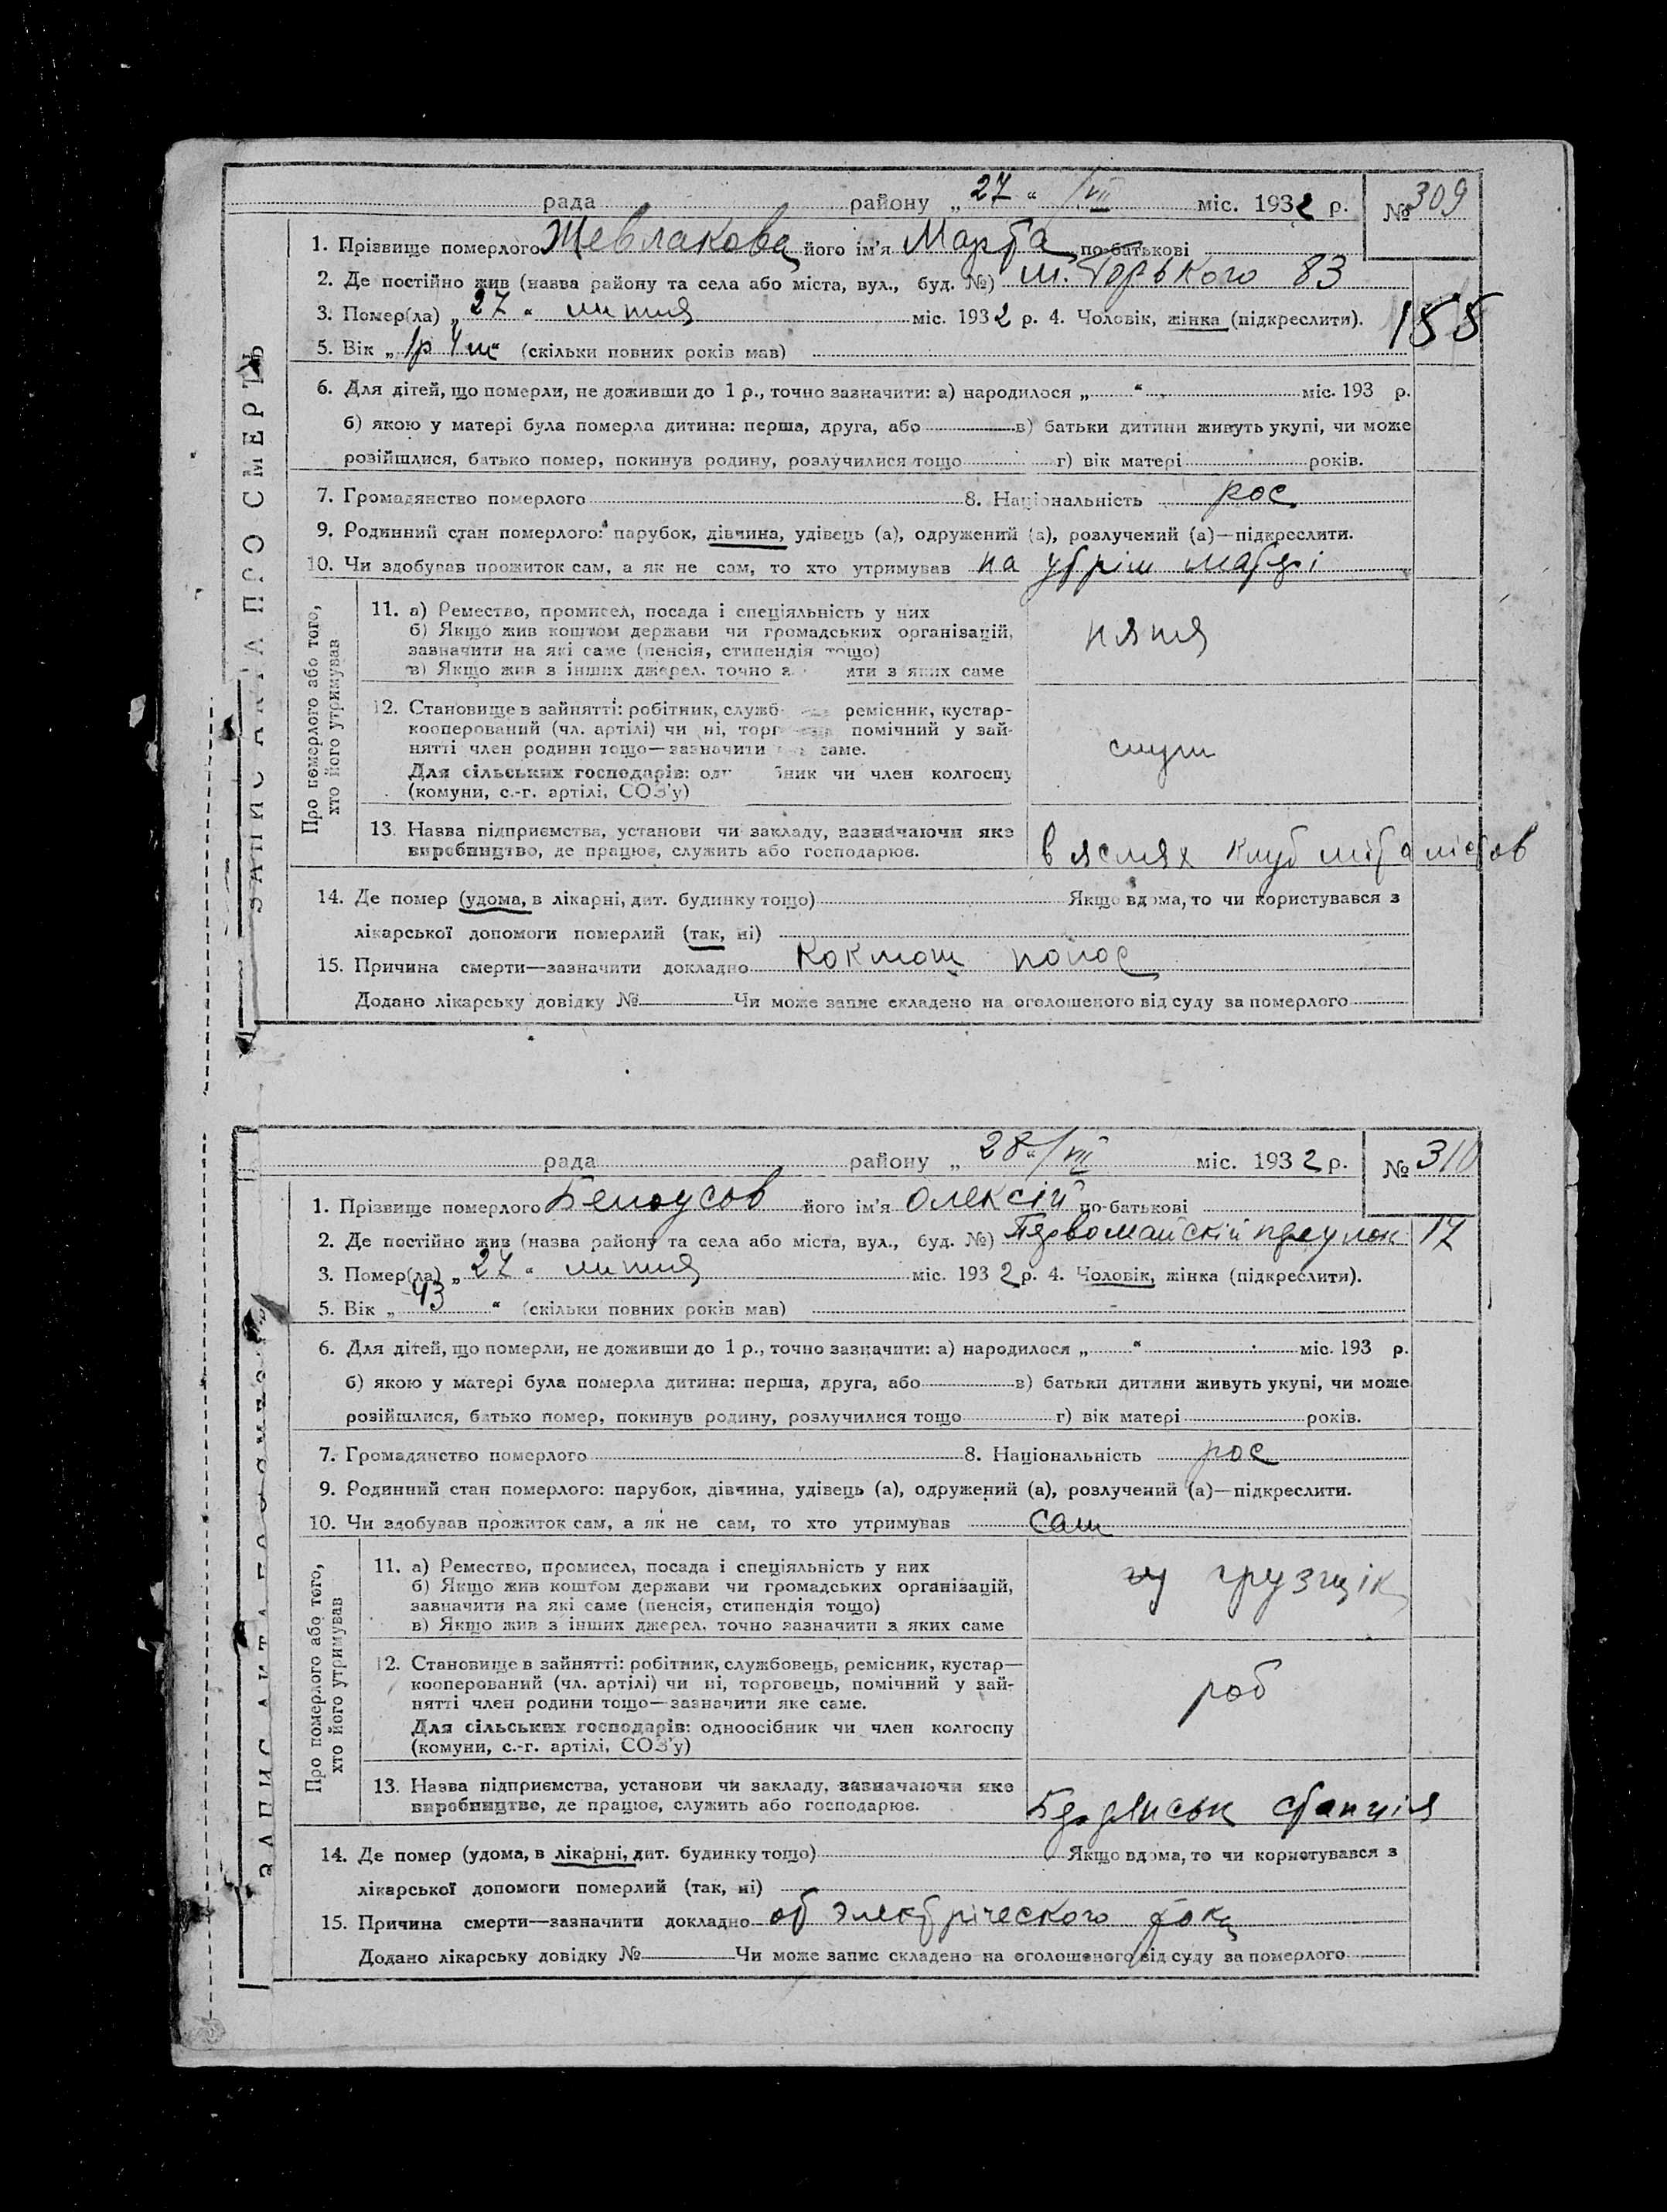 рада району „27“ /VII міс. 1932 р. № 309
1. Прізвище померлого Шевлакова його ім'я Марта по-батькові
2. Де постійно жив (назва району та села або міста, вул., буд. №) М. Горького 83
3. Помер(ла) „27“ липня міс. 1932 р. 4. Чоловік, жінка (підкреслити). 155
5. Вік „1р 4м“ (скільки повних років мав)
6. Для дітей, що померли, не доживши до 1 р., точно зазначити: а) народилося „ “ міс. 193 р.
б) якою у матері була померла дитина: перша, друга, або в) батьки дитини живуть укупі, чи може
розійшлися, батько помер, покинув родину, розлучилися тощо г) вік матері років.
7. Громадянство померлого 8. Національність рос
9. Родинний стан померлого: парубок, дівчина, удівець (а), одружений (а), розлучений (а)—підкреслити.
10. Чи здобував прожиток сам, а як не сам, то хто утримував на утрім матері
ЗАПИС АКТА ПРО СМЕРТЬ
Про померлого або того,
хто його утримував
11. а) Ремество, промисел, посада і спеціяльність у них
б) Якщо жив коштом держави чи громадських організацій,
зазначити на які саме (пенсія, стипендія тощо)
в) Якщо жив з інших джерел, точно з ити з яких саме
няня
12. Становище в зайнятті: робітник, служб ремісник, кустар-
кооперований (чл. артілі) чи ні, торг помічний у зай-
нятті член родини тощо—зазначити саме.
Для сільських господарів: од ник чи член колгоспу
(комуни, с.-г. артілі, СОЗ'у)
служ
13. Назва підприємства, установи чи закладу, зазначаючи яке
виробництво, де працює, служить або господарює.
в яслях клуб металістов
14. Де помер (удома, в лікарні, дит. будинку тощо) Якщо вдома, то чи користувався з
лікарської допомоги померлий (так, ні)
15. Причина смерти—зазначити докладно Коклюш понос
Додано лікарську довідку № Чи може запис складено на оголошеного від суду за померлого
рада району „28“/VII міс. 1932 р. № 310
1. Прізвище померлого Белоусов його ім'я Олексій по-батькові
2. Де постійно жив (назва району та села або міста, вул., буд. №) Первомайскій преулок 17
3. Помер(ла) „27“ липня міс. 1932 р. 4. Чоловік, жінка (підкреслити).
5. Вік „43“ (скільки повних років мав)
6. Для дітей, що померли, не доживши до 1 р., точно зазначити: а) народилося „ “ міс. 193 р.
б) якою у матері була померла дитина: перша, друга, або в) батьки дитини живуть укупі, чи може
розійшлися, батько помер, покинув родину, розлучилися тощо г) вік матері років.
7. Громадянство померлого 8. Національність рос
9. Родинний стан померлого: парубок, дівчина, удівець (а), одружений (а), розлучений (а)—підкреслити.
10. Чи здобував прожиток сам, а як не сам, то хто утримував сам
Про померлого або того,
хто його утримував
11. а) Ремество, промисел, посада і спеціяльність у них
б) Якщо жив коштом держави чи громадських організацій,
зазначити на які саме (пенсія, стипендія тощо)
в) Якщо жив з інших джерел, точно зазначити з яких саме
грузчік
12. Становище в зайнятті: робітник, службовець, ремісник, кустар—
кооперований (чл. артілі) чи ні, торговець, помічний у зай-
нятті член родини тощо—зазначити яке саме.
Для сільських господарів: одноосібник чи член колгоспу
(комуни, с.-г. артілі, СОЗ'у)
роб
13. Назва підприємства, установи чи закладу, зазначаючи яке
виробництво, де працює, служить або господарює.
Бердянськ станція
14. Де помер (удома, в лікарні, дит. будинку тощо) Якщо вдома, то чи користувався з
лікарської допомоги померлий (так, ні)
15. Причина смерти—зазначити докладно от электріческого тока
Додано лікарську довідку № Чи може запис складено на оголошеного від суду за померлого